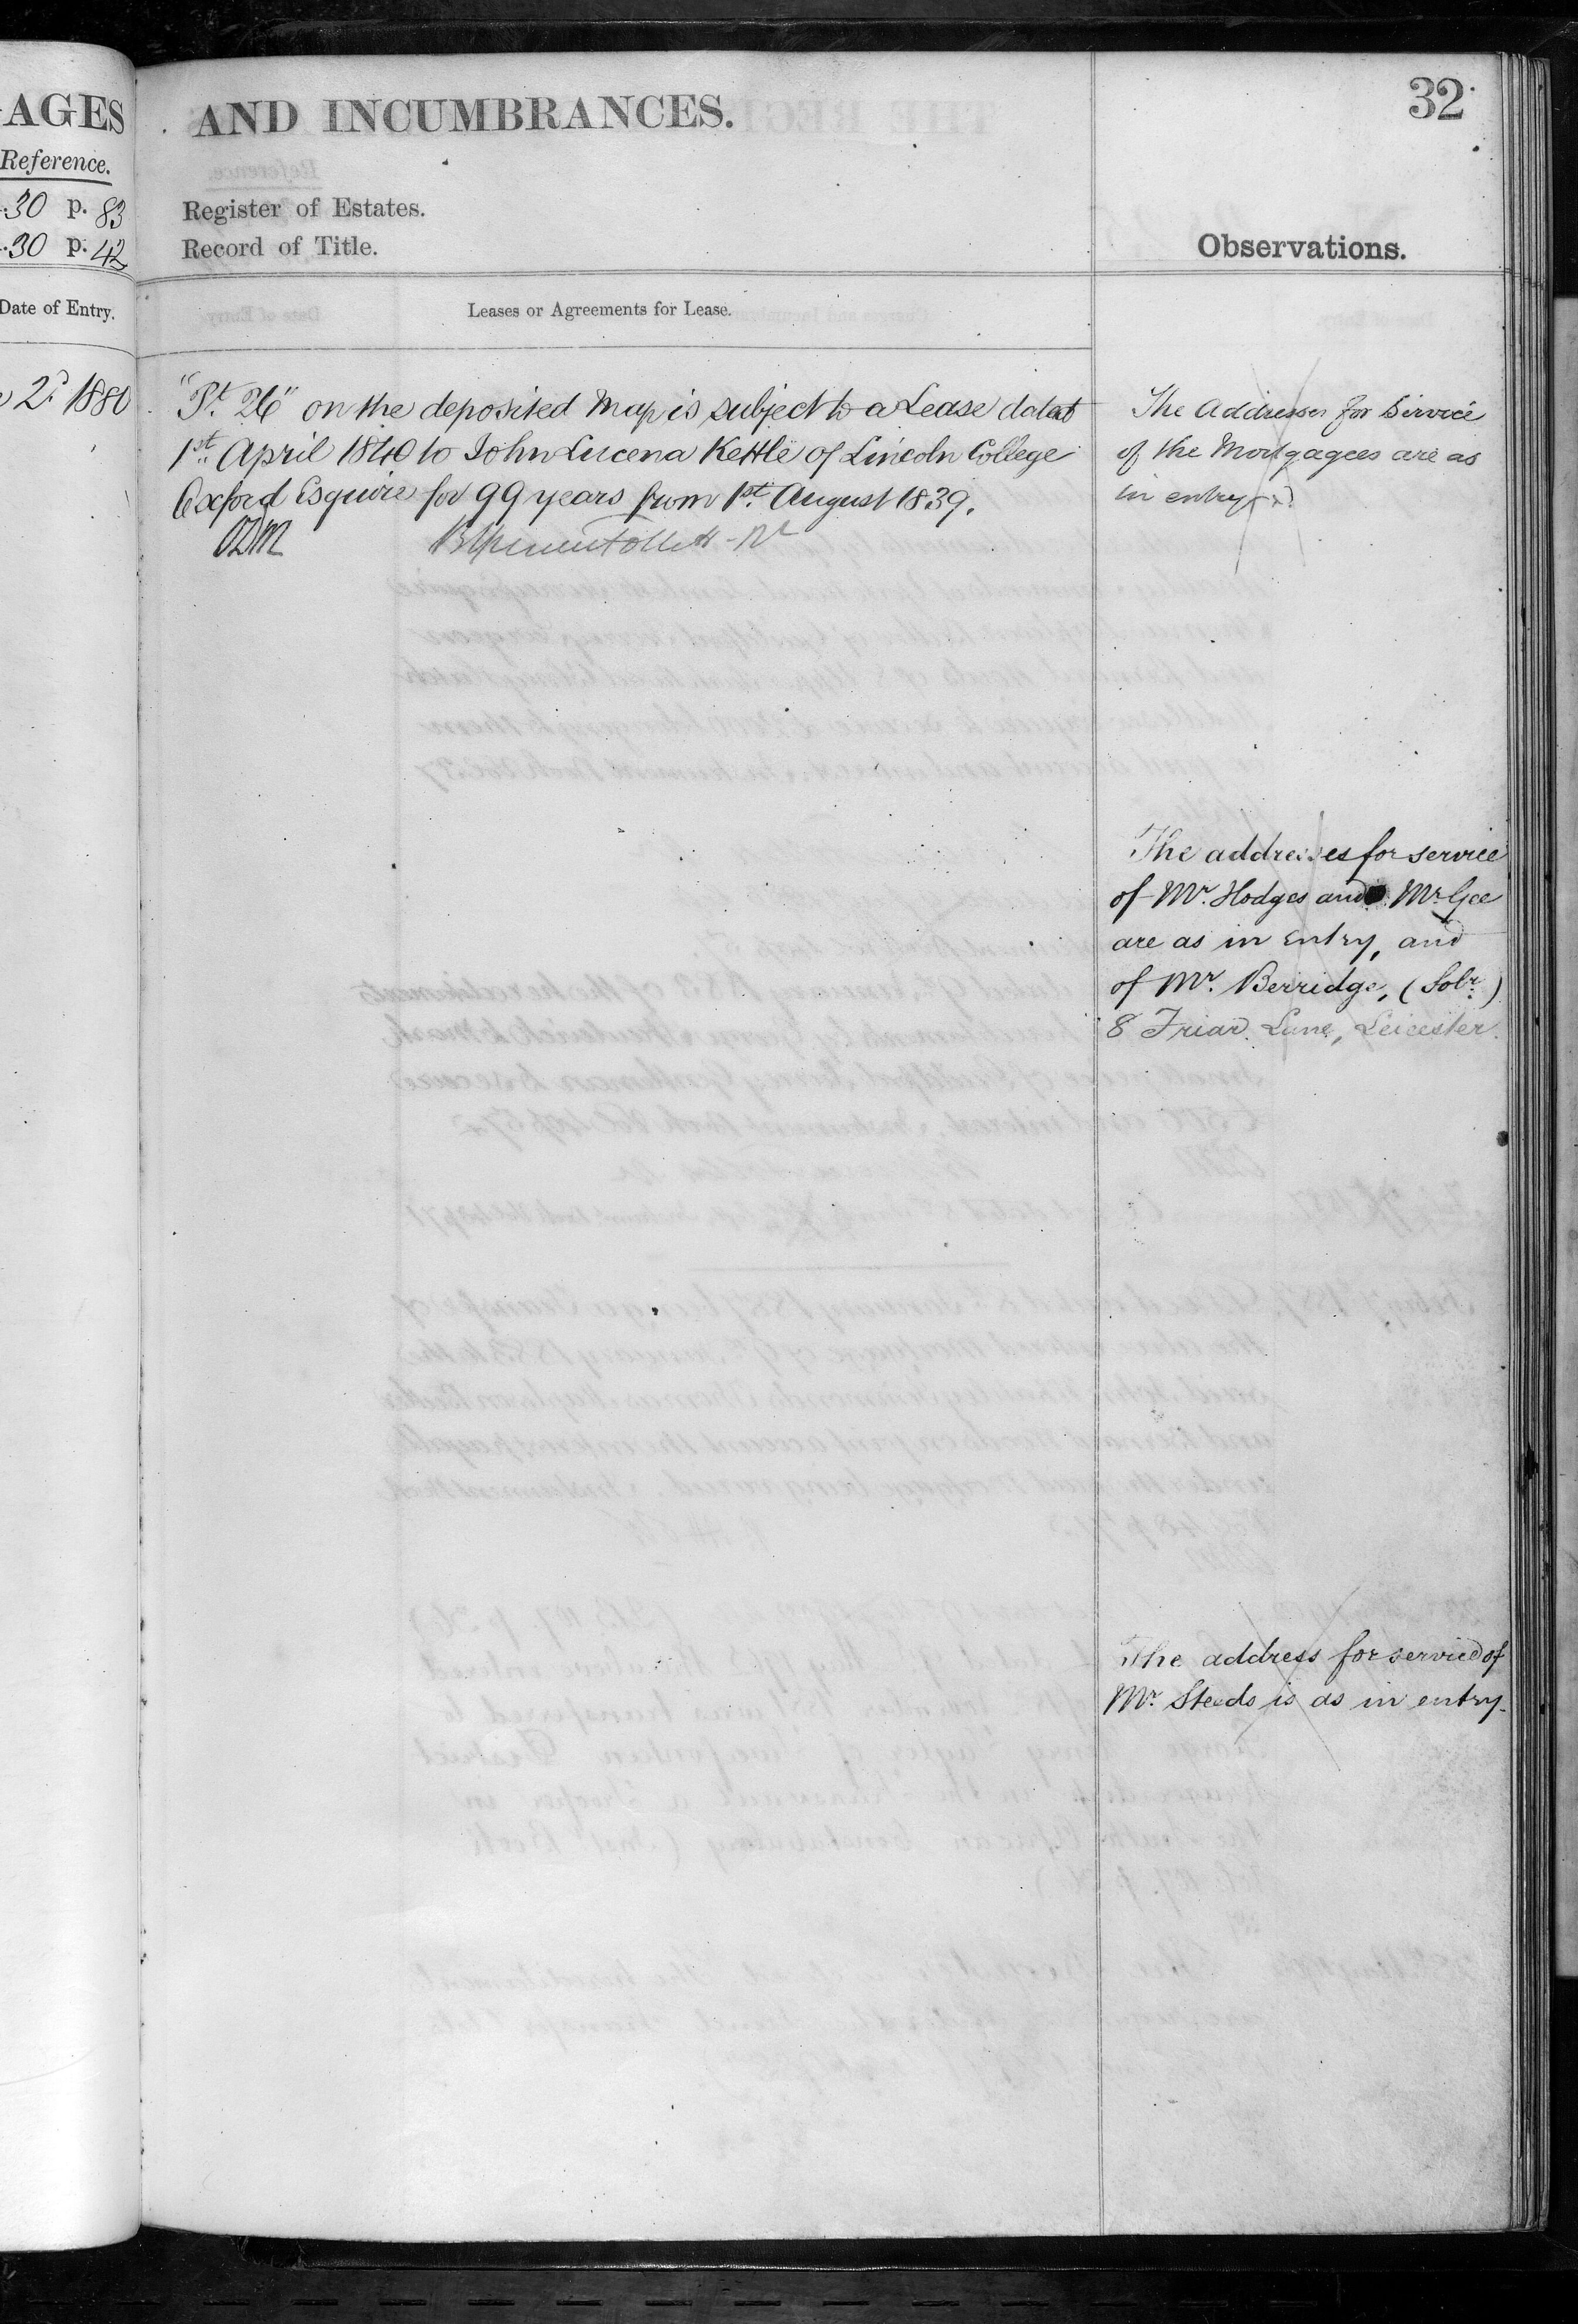 AGES
Reference.
30 p. 83
30 p. 42
Date of Entry.
2d 1880
AND INCUMBRANCES.
32
Register of Estates.
Record of Title.
Observations.
Leases or Agreements for Lease.
"Pt. 26" on the deposited Map is subject to a Lease dated
1st April 1840 to John Lucena Kettle of Lincoln College
Oxford Esquire for 99 years from 1st August 1839.
The Addresses for Service
of the Mortgagees are as
in entry
The addresses for service
of Mr. Hodges and Mr. Gee
are as in entry, and
of Mr. Berridge, (Solr.)
8 Friar Lane, Leicester.
The address for service of
Mr. Steeds is as in entry.